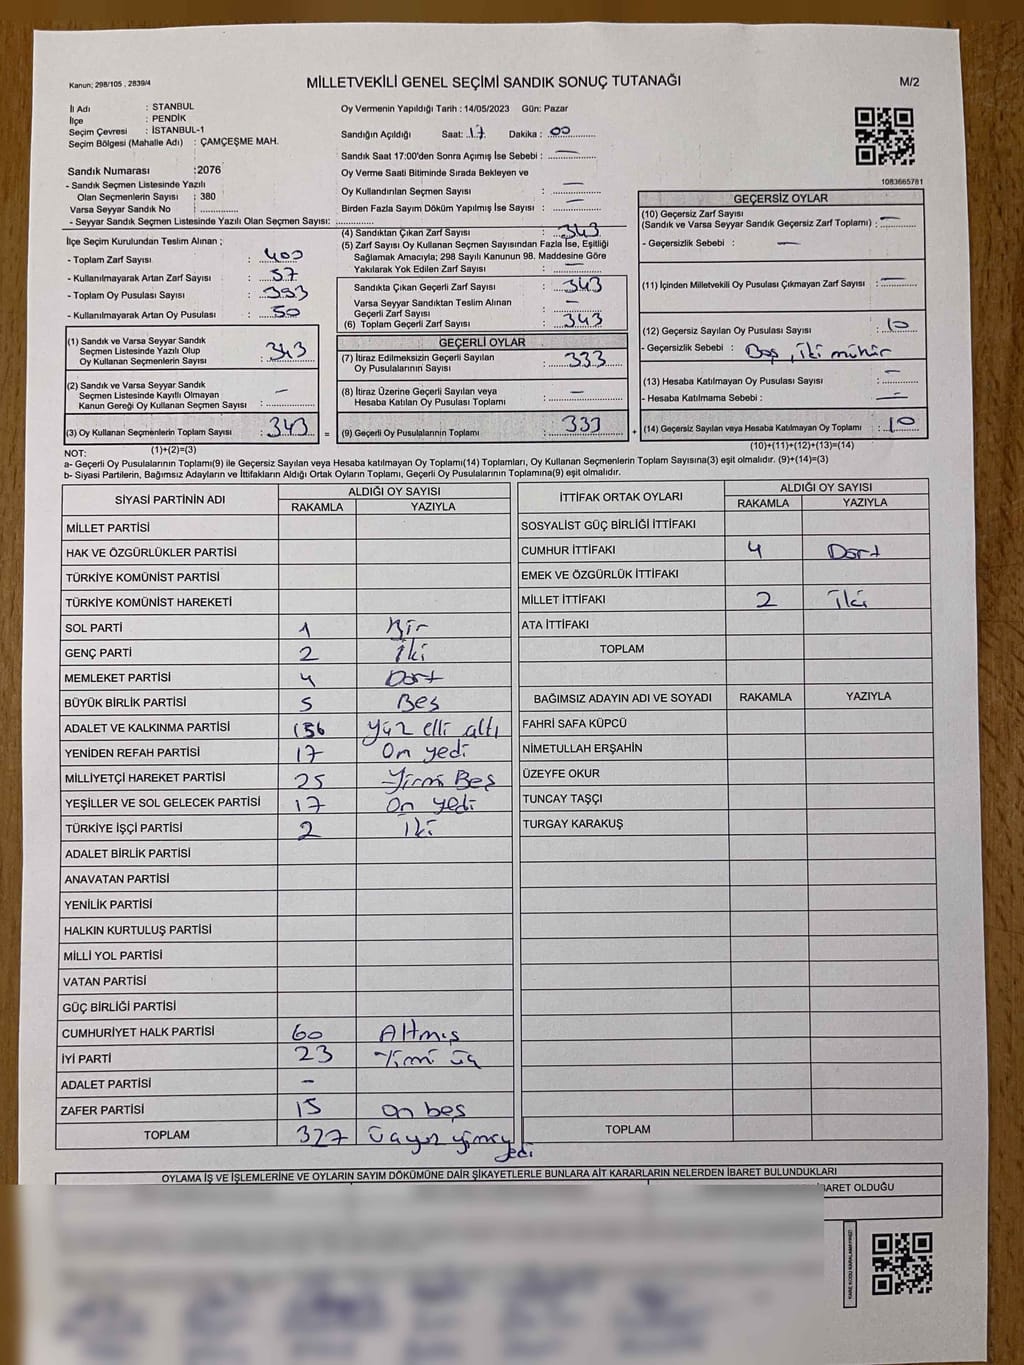 Kanun; 298/105 , 2839/4
MİLLETVEKİLİ GENEL SEÇİMİ SANDIK SONUÇ TUTANAĞI
M/2
İl Adı : STANBUL
İlçe : PENDİK
Seçim Çevresi : İSTANBUL-1
Seçim Bölgesi (Mahalle Adı) : ÇAMÇEŞME MAH.
Sandık Numarası :2076
- Sandık Seçmen Listesinde Yazılı
Olan Seçmenlerin Sayısı : 380
Varsa Seyyar Sandık No :
- Seyyar Sandık Seçmen Listesinde Yazılı Olan Seçmen Sayısı:
Oy Vermenin Yapıldığı Tarih : 14/05/2023 Gün: Pazar
Sandığın Açıldığı Saat: 17 Dakika : 00
Sandık Saat 17:00'den Sonra Açımış İse Sebebi : —
Oy Verme Saati Bitiminde Sırada Bekleyen ve
Oy Kullandırılan Seçmen Sayısı : —
Birden Fazla Sayım Döküm Yapılmış İse Sayısı : —
1083665781
İlçe Seçim Kurulundan Teslim Alınan ;
- Toplam Zarf Sayısı : 400
- Kullanılmayarak Artan Zarf Sayısı : 57
- Toplam Oy Pusulası Sayısı : 393
- Kullanılmayarak Artan Oy Pusulası : 50
(1) Sandık ve Varsa Seyyar Sandık
Seçmen Listesinde Yazılı Olup
Oy Kullanan Seçmenlerin Sayısı : 343
(2) Sandık ve Varsa Seyyar Sandık
Seçmen Listesinde Kayıtlı Olmayan
Kanun Gereği Oy Kullanan Seçmen Sayısı : —
(3) Oy Kullanan Seçmenlerin Toplam Sayısı : 343 =
(4) Sandıktan Çıkan Zarf Sayısı : 343
(5) Zarf Sayısı Oy Kullanan Seçmen Sayısından Fazla İse, Eşitliği
Sağlamak Amacıyla; 298 Sayılı Kanunun 98. Maddesine Göre
Yakılarak Yok Edilen Zarf Sayısı : —
Sandıkta Çıkan Geçerli Zarf Sayısı : 343
Varsa Seyyar Sandıktan Teslim Alınan
Geçerli Zarf Sayısı : —
(6) Toplam Geçerli Zarf Sayısı : 343
GEÇERLİ OYLAR
(7) İtiraz Edilmeksizin Geçerli Sayılan
Oy Pusulalarının Sayısı : 333
(8) İtiraz Üzerine Geçerli Sayılan veya
Hesaba Katılan Oy Pusulası Toplamı : —
(9) Geçerli Oy Pusulalarının Toplamı : 333 +
GEÇERSİZ OYLAR
(10) Geçersiz Zarf Sayısı
(Sandık ve Varsa Seyyar Sandık Geçersiz Zarf Toplamı) : —
- Geçersizlik Sebebi : —
(11) İçinden Milletvekili Oy Pusulası Çıkmayan Zarf Sayısı : —
(12) Geçersiz Sayılan Oy Pusulası Sayısı : 10
- Geçersizlik Sebebi : Boş, iki mühür
(13) Hesaba Katılmayan Oy Pusulası Sayısı : —
- Hesaba Katılmama Sebebi : —
(14) Geçersiz Sayılan veya Hesaba Katılmayan Oy Toplamı : 10
NOT: (1)+(2)=(3)
(10)+(11)+(12)+(13)=(14)
a- Geçerli Oy Pusulalarının Toplamı(9) ile Geçersiz Sayılan veya Hesaba katılmayan Oy Toplamı(14) Toplamları, Oy Kullanan Seçmenlerin Toplam Sayısına(3) eşit olmalıdır. (9)+(14)=(3)
b- Siyasi Partilerin, Bağımsız Adayların ve İttifakların Aldığı Ortak Oyların Toplamı, Geçerli Oy Pusulalarının Toplamına(9) eşit olmalıdır.
SİYASİ PARTİNİN ADI ALDIĞI OY SAYISI
RAKAMLA YAZIYLA
MİLLET PARTİSİ
HAK VE ÖZGÜRLÜKLER PARTİSİ
TÜRKİYE KOMÜNİST PARTİSİ
TÜRKİYE KOMÜNİST HAREKETİ
SOL PARTİ 1 Bir
GENÇ PARTİ 2 İki
MEMLEKET PARTİSİ 4 Dört
BÜYÜK BİRLİK PARTİSİ 5 Beş
ADALET VE KALKINMA PARTİSİ 156 yüz elli altı
YENİDEN REFAH PARTİSİ 17 On yedi
MİLLİYETÇİ HAREKET PARTİSİ 25 Yirmi Beş
YEŞİLLER VE SOL GELECEK PARTİSİ 17 On yedi
TÜRKİYE İŞÇİ PARTİSİ 2 İki
ADALET BİRLİK PARTİSİ
ANAVATAN PARTİSİ
YENİLİK PARTİSİ
HALKIN KURTULUŞ PARTİSİ
MİLLİ YOL PARTİSİ
VATAN PARTİSİ
GÜÇ BİRLİĞİ PARTİSİ
CUMHURİYET HALK PARTİSİ 60 Altmış
İYİ PARTİ 23 Yirmi üç
ADALET PARTİSİ –
ZAFER PARTİSİ 15 on beş
TOPLAM 327 üçyüz yirmi yedi
İTTİFAK ORTAK OYLARI ALDIĞI OY SAYISI
RAKAMLA YAZIYLA
SOSYALİST GÜÇ BİRLİĞİ İTTİFAKI
CUMHUR İTTİFAKI 4 Dört
EMEK VE ÖZGÜRLÜK İTTİFAKI
MİLLET İTTİFAKI 2 İki
ATA İTTİFAKI
TOPLAM
BAĞIMSIZ ADAYIN ADI VE SOYADI RAKAMLA YAZIYLA
FAHRİ SAFA KÜPCÜ
NİMETULLAH ERŞAHİN
ÜZEYFE OKUR
TUNCAY TAŞÇI
TURGAY KARAKUŞ
TOPLAM
OYLAMA İŞ VE İŞLEMLERİNE VE OYLARIN SAYIM DÖKÜMÜNE DAİR ŞİKAYETLERLE BUNLARA AİT KARARLARIN NELERDEN İBARET BULUNDUKLARI
İBARET OLDUĞU